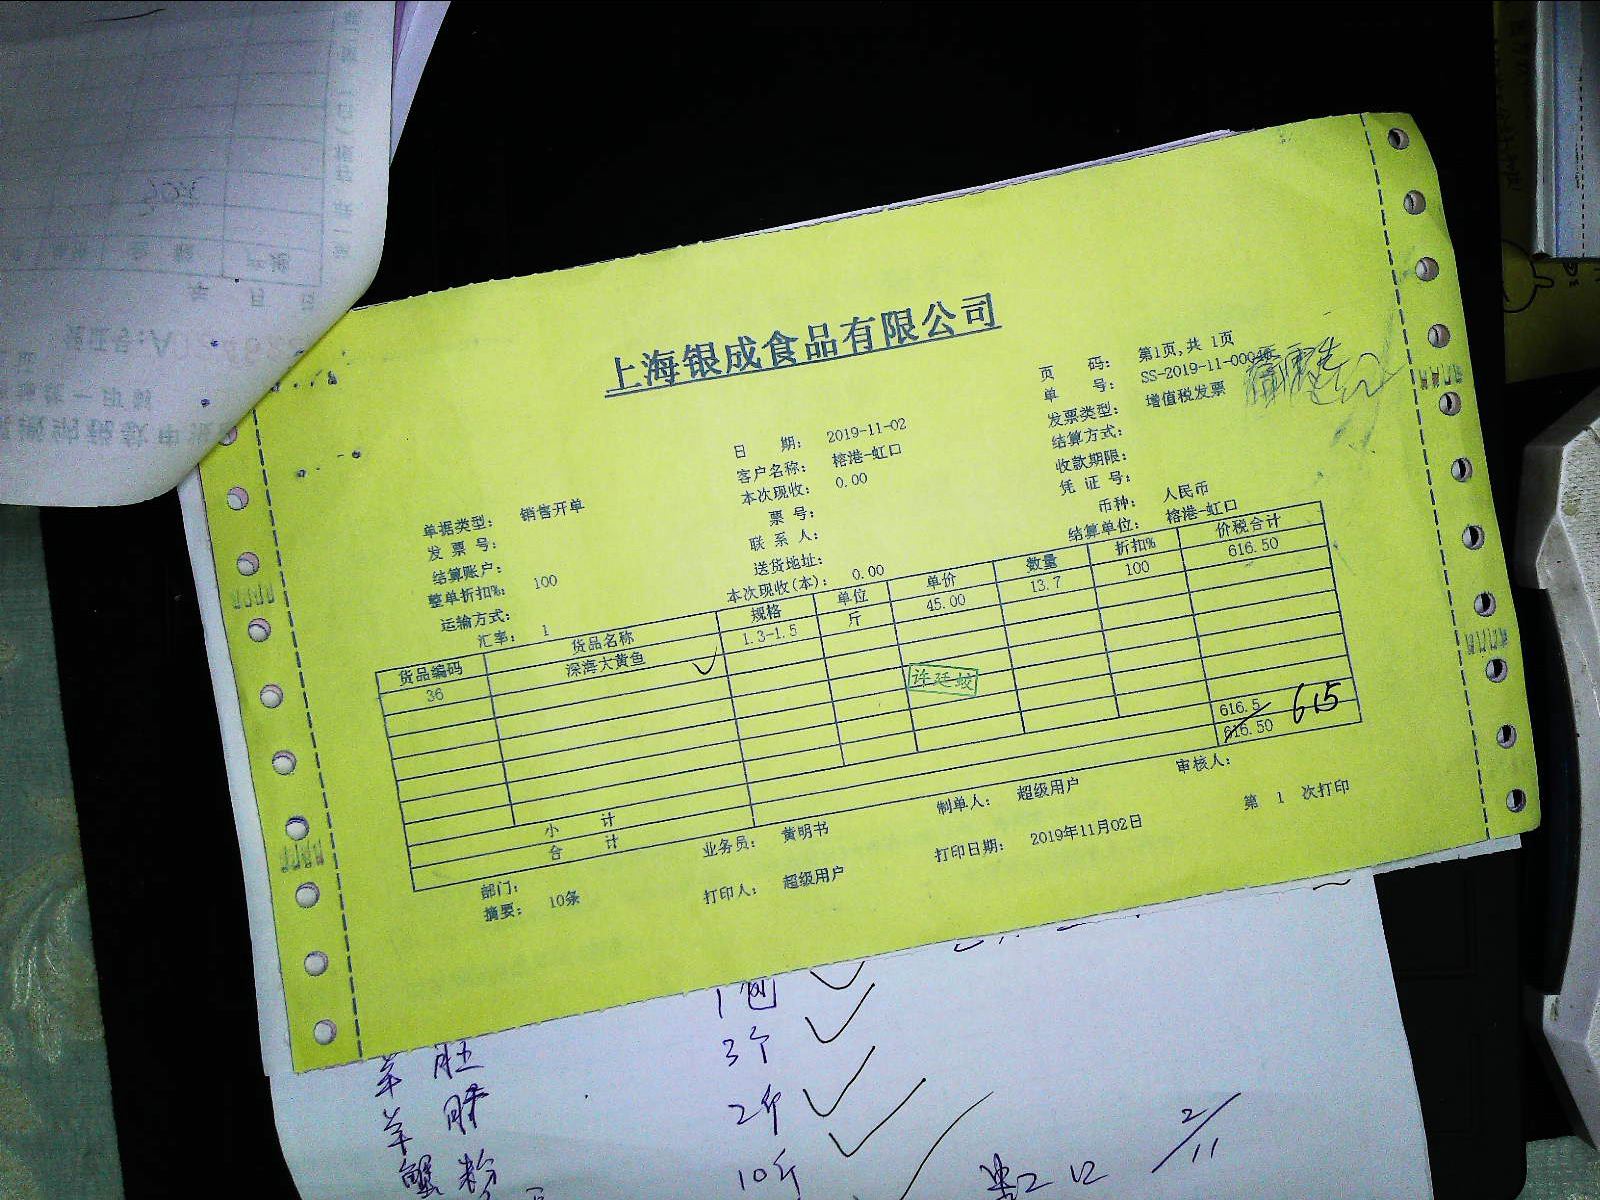 上海银成食品有限公司
页 码： 第1页,共 1页
单 号： SS-2019-11-000
日 期： 2019-11-02
发票类型： 增值税发票
客户名称： 榕港-虹口
结算方式：
单据类型： 销售开单
本次现收： 0.00
收款期限：
发 票 号：
票 号：
凭 证 号：
结算账户：
联 系 人：
币种： 人民币
整单折扣%： 100
送货地址：
结算单位： 榕港-虹口
运输方式：
本次现收(本)： 0.00
汇率： 1
货品编码 货品名称 规格 单位 单价 数量 折扣% 价税合计
36 深海大黄鱼 1.3-1.5 斤 45.00 13.7 100 616.50
许廷蛟
小 计 616.5 615
合 计 616.50
部门： 业务员： 黄明书 制单人： 超级用户 审核人：
摘要： 10条 打印人： 超级用户 打印日期： 2019年11月02日 第 1 次打印
1包
羊肚 3个
羊 2斤
蟹粉 10斤
虹口 2/11